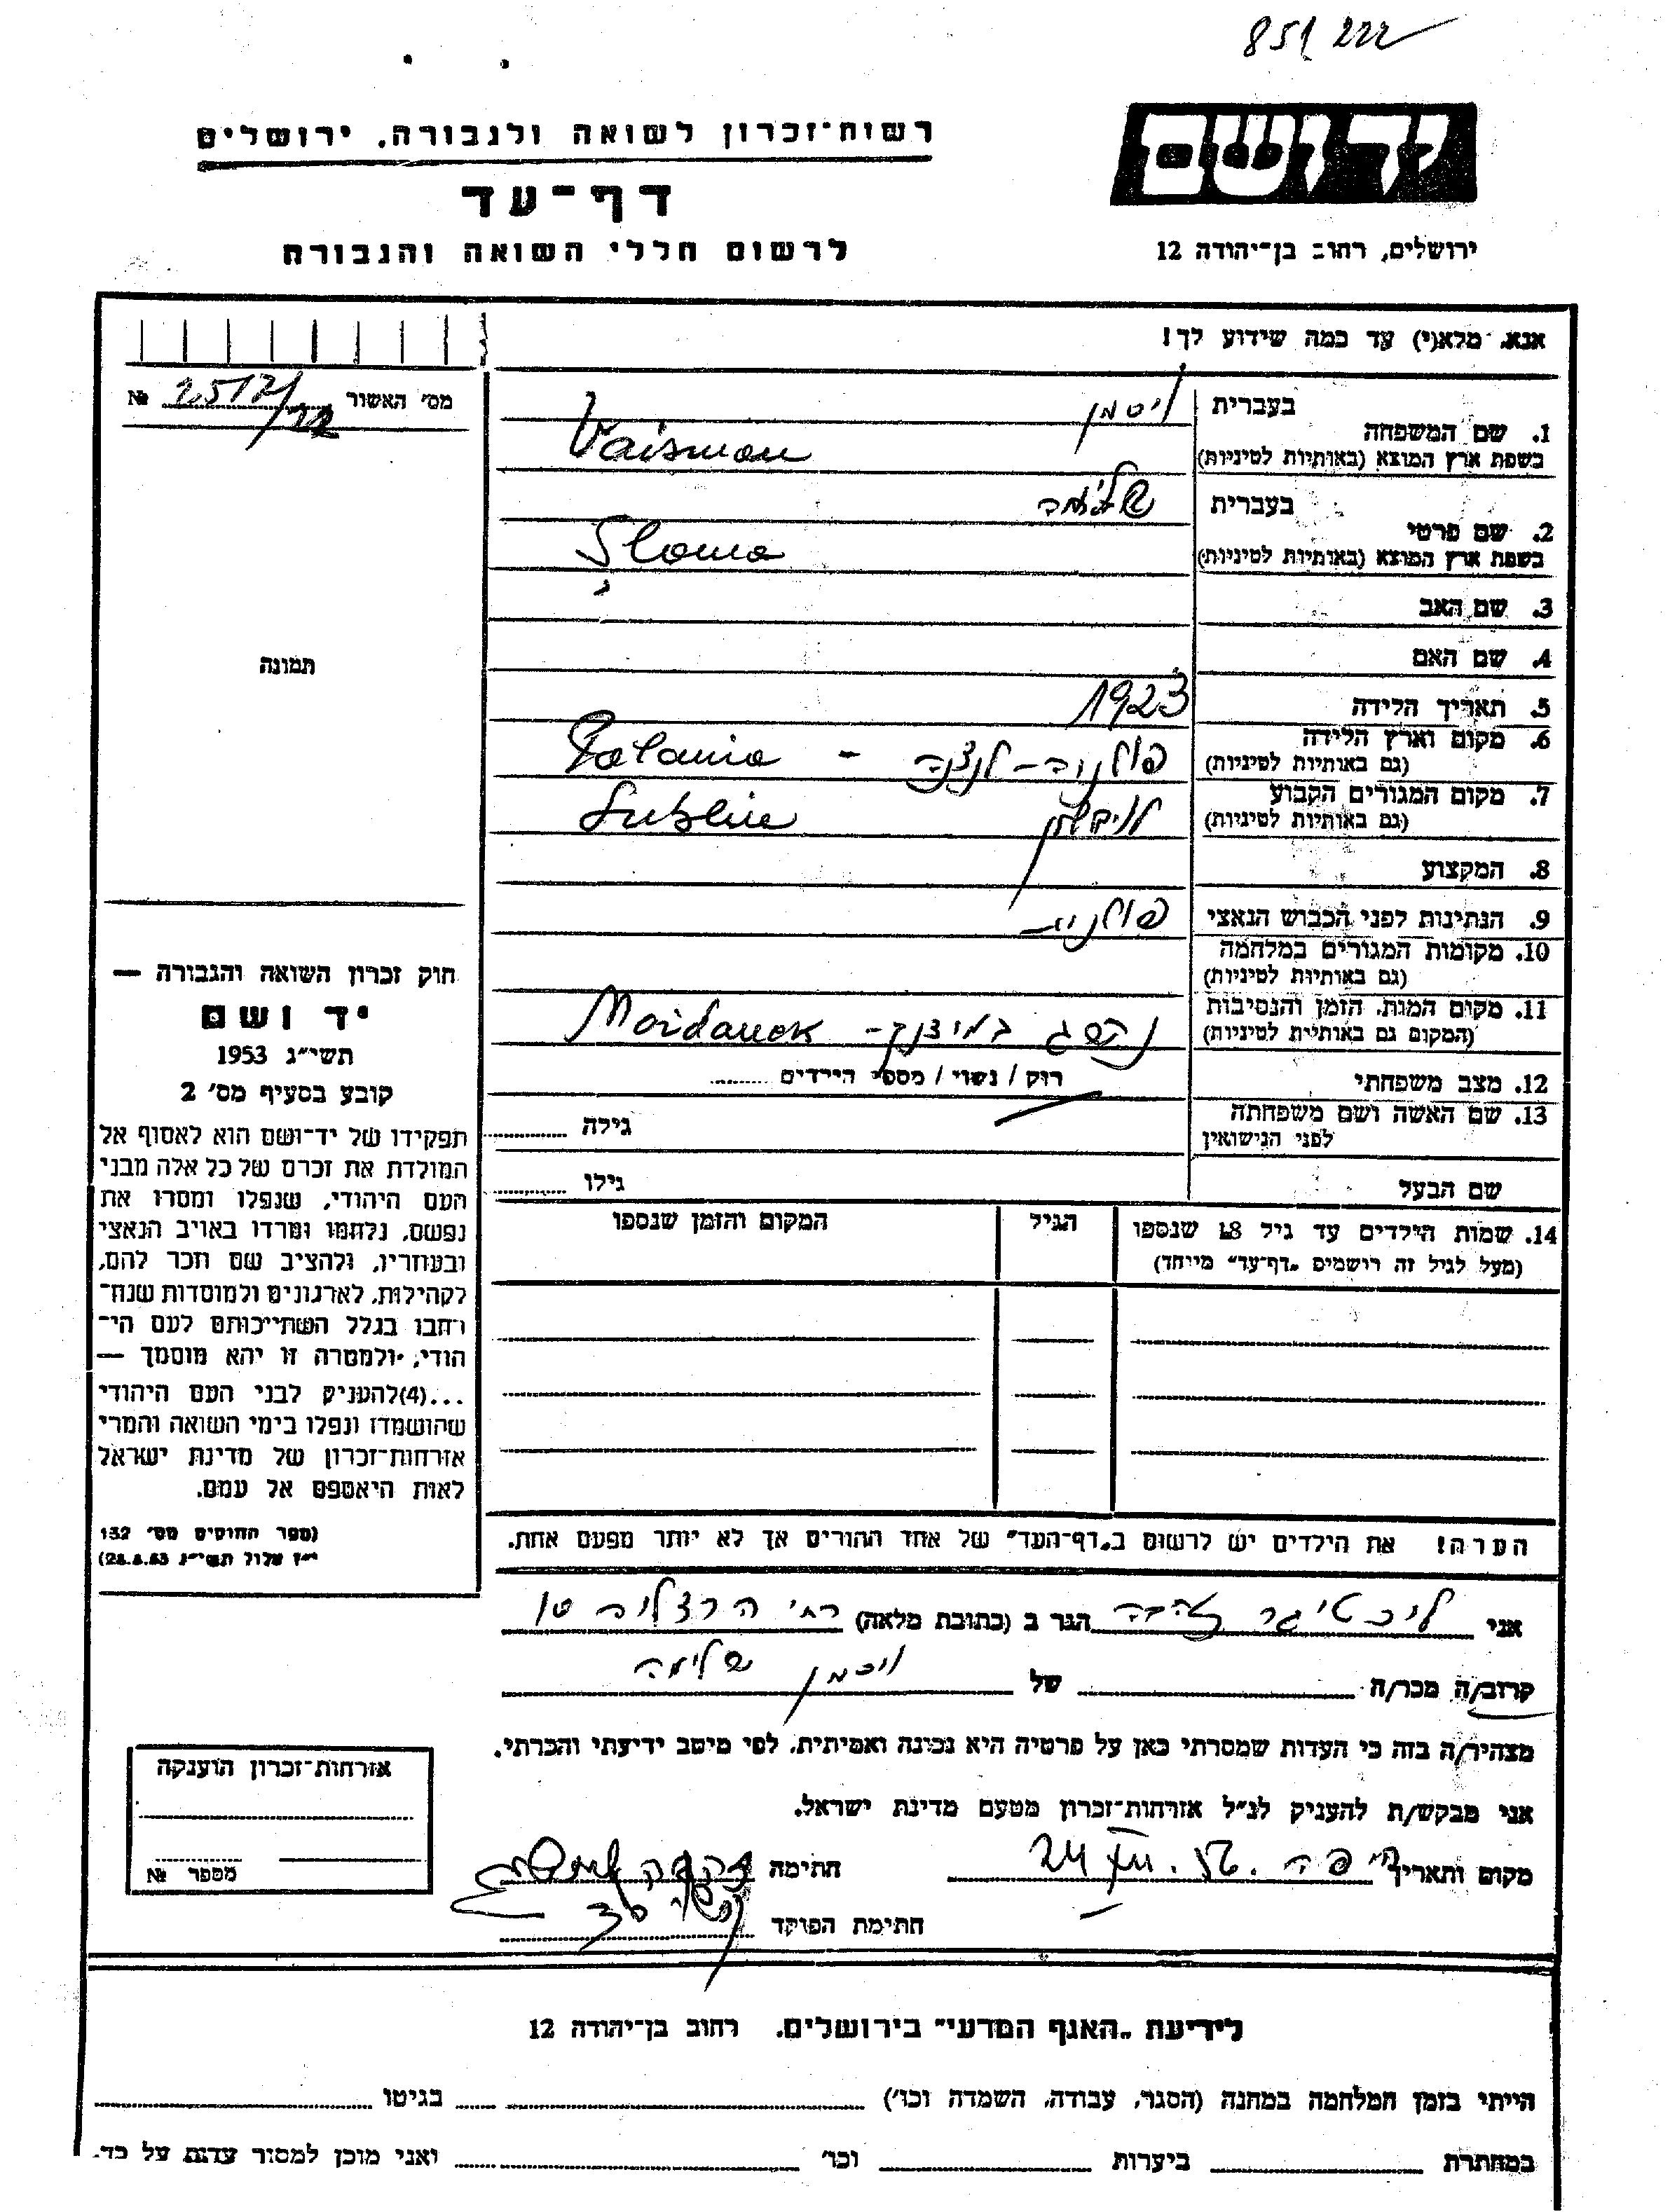 851/222
ידושם
רשות־זכרון לשואה ולגבורה, ירושלים
דף־עד
לרשום חללי השואה והגבורה
ירושלים, רחוב בן־יהודה 12
אנא, מלא(י) עד כמה שידוע לך!
מס' האשור № 2517/22
תמונה
1. שם המשפחה
בעברית ויסמן
בשפת ארץ המוצא (באותיות לטיניות) Vaisman
2. שם פרטי
בעברית שלימה
בשפת ארץ המוצא (באותיות לטיניות) Sloma
3. שם האב
4. שם האם
5. תאריך הלידה 1923
6. מקום וארץ הלידה
(גם באותיות לטיניות) פולניה - לנצנה - Polania
7. מקום המגורים הקבוע
(גם באותיות לטיניות) לובלין Lublin
8. המקצוע
9. הנתינות לפני הכבוש הנאצי פולניה
10. מקומות המגורים במלחמה
(גם באותיות לטיניות)
11. מקום המות, הזמן והנסיבות
(המקום גם באותיות לטיניות) Maidanek -
12. מצב משפחתי רוק / נשוי / מספר הילדים
13. שם האשה ושם משפחתה
לפני הנישואין גילה
שם הבעל גילו
14. שמות הילדים עד גיל 18 שנספו
(מעל לגיל זה רושמים „דף־עד" מייחד)
הגיל
המקום והזמן שנספו
הערה! את הילדים יש לרשום ב„דף־העד" של אחד ההורים אך לא יותר מפעם אחת.
חוק זכרון השואה והגבורה —
יד ושם
תשי"ג 1953
קובע בסעיף מס' 2
תפקידו של יד־ושם הוא לאסוף אל
המולדת את זכרם של כל אלה מבני
העם היהודי, שנפלו ומסרו את
נפשם, נלחמו ומרדו באויב הנאצי
ובעוזריו, ולהציב שם וזכר להם,
לקהילות, לארגונים ולמוסדות שנח־
רבו בגלל השתייכותם לעם הי־
הודי, ולמטרה זו יהא מוסמך —
...(4)להעניק לבני העם היהודי
שהושמדו ונפלו בימי השואה והמרי
אזרחות־זכרון של מדינת ישראל
לאות היאספם אל עמם.
(ספר החוקים מס' 132
י"ז אלול תשי"ג 28.8.53)
אני ליכטיגר זהבה הגר ב (כתובת מלאה) רח' הרצליה 10
קרוב/ה מכר/ה של ויסמן שלימה
מצהיר/ה בזה כי העדות שמסרתי כאן על פרטיה היא נכונה ואמיתית, לפי מיטב ידיעתי והכרתי.
אני מבקש/ת להעניק לנ"ל אזרחות־זכרון מטעם מדינת ישראל.
מקום ותאריך חיפה 24 XII. 56. חתימה
חתימת הפוקד
אזרחות־זכרון הוענקה
מספר №
לידיעת „האגף המדעי" בירושלים. רחוב בן־יהודה 12
הייתי בזמן המלחמה במחנה (הסגר, עבודה, השמדה וכו') בגיטו
במחתרת ביערות וכו' ואני מוכן למסור עדות על כך.